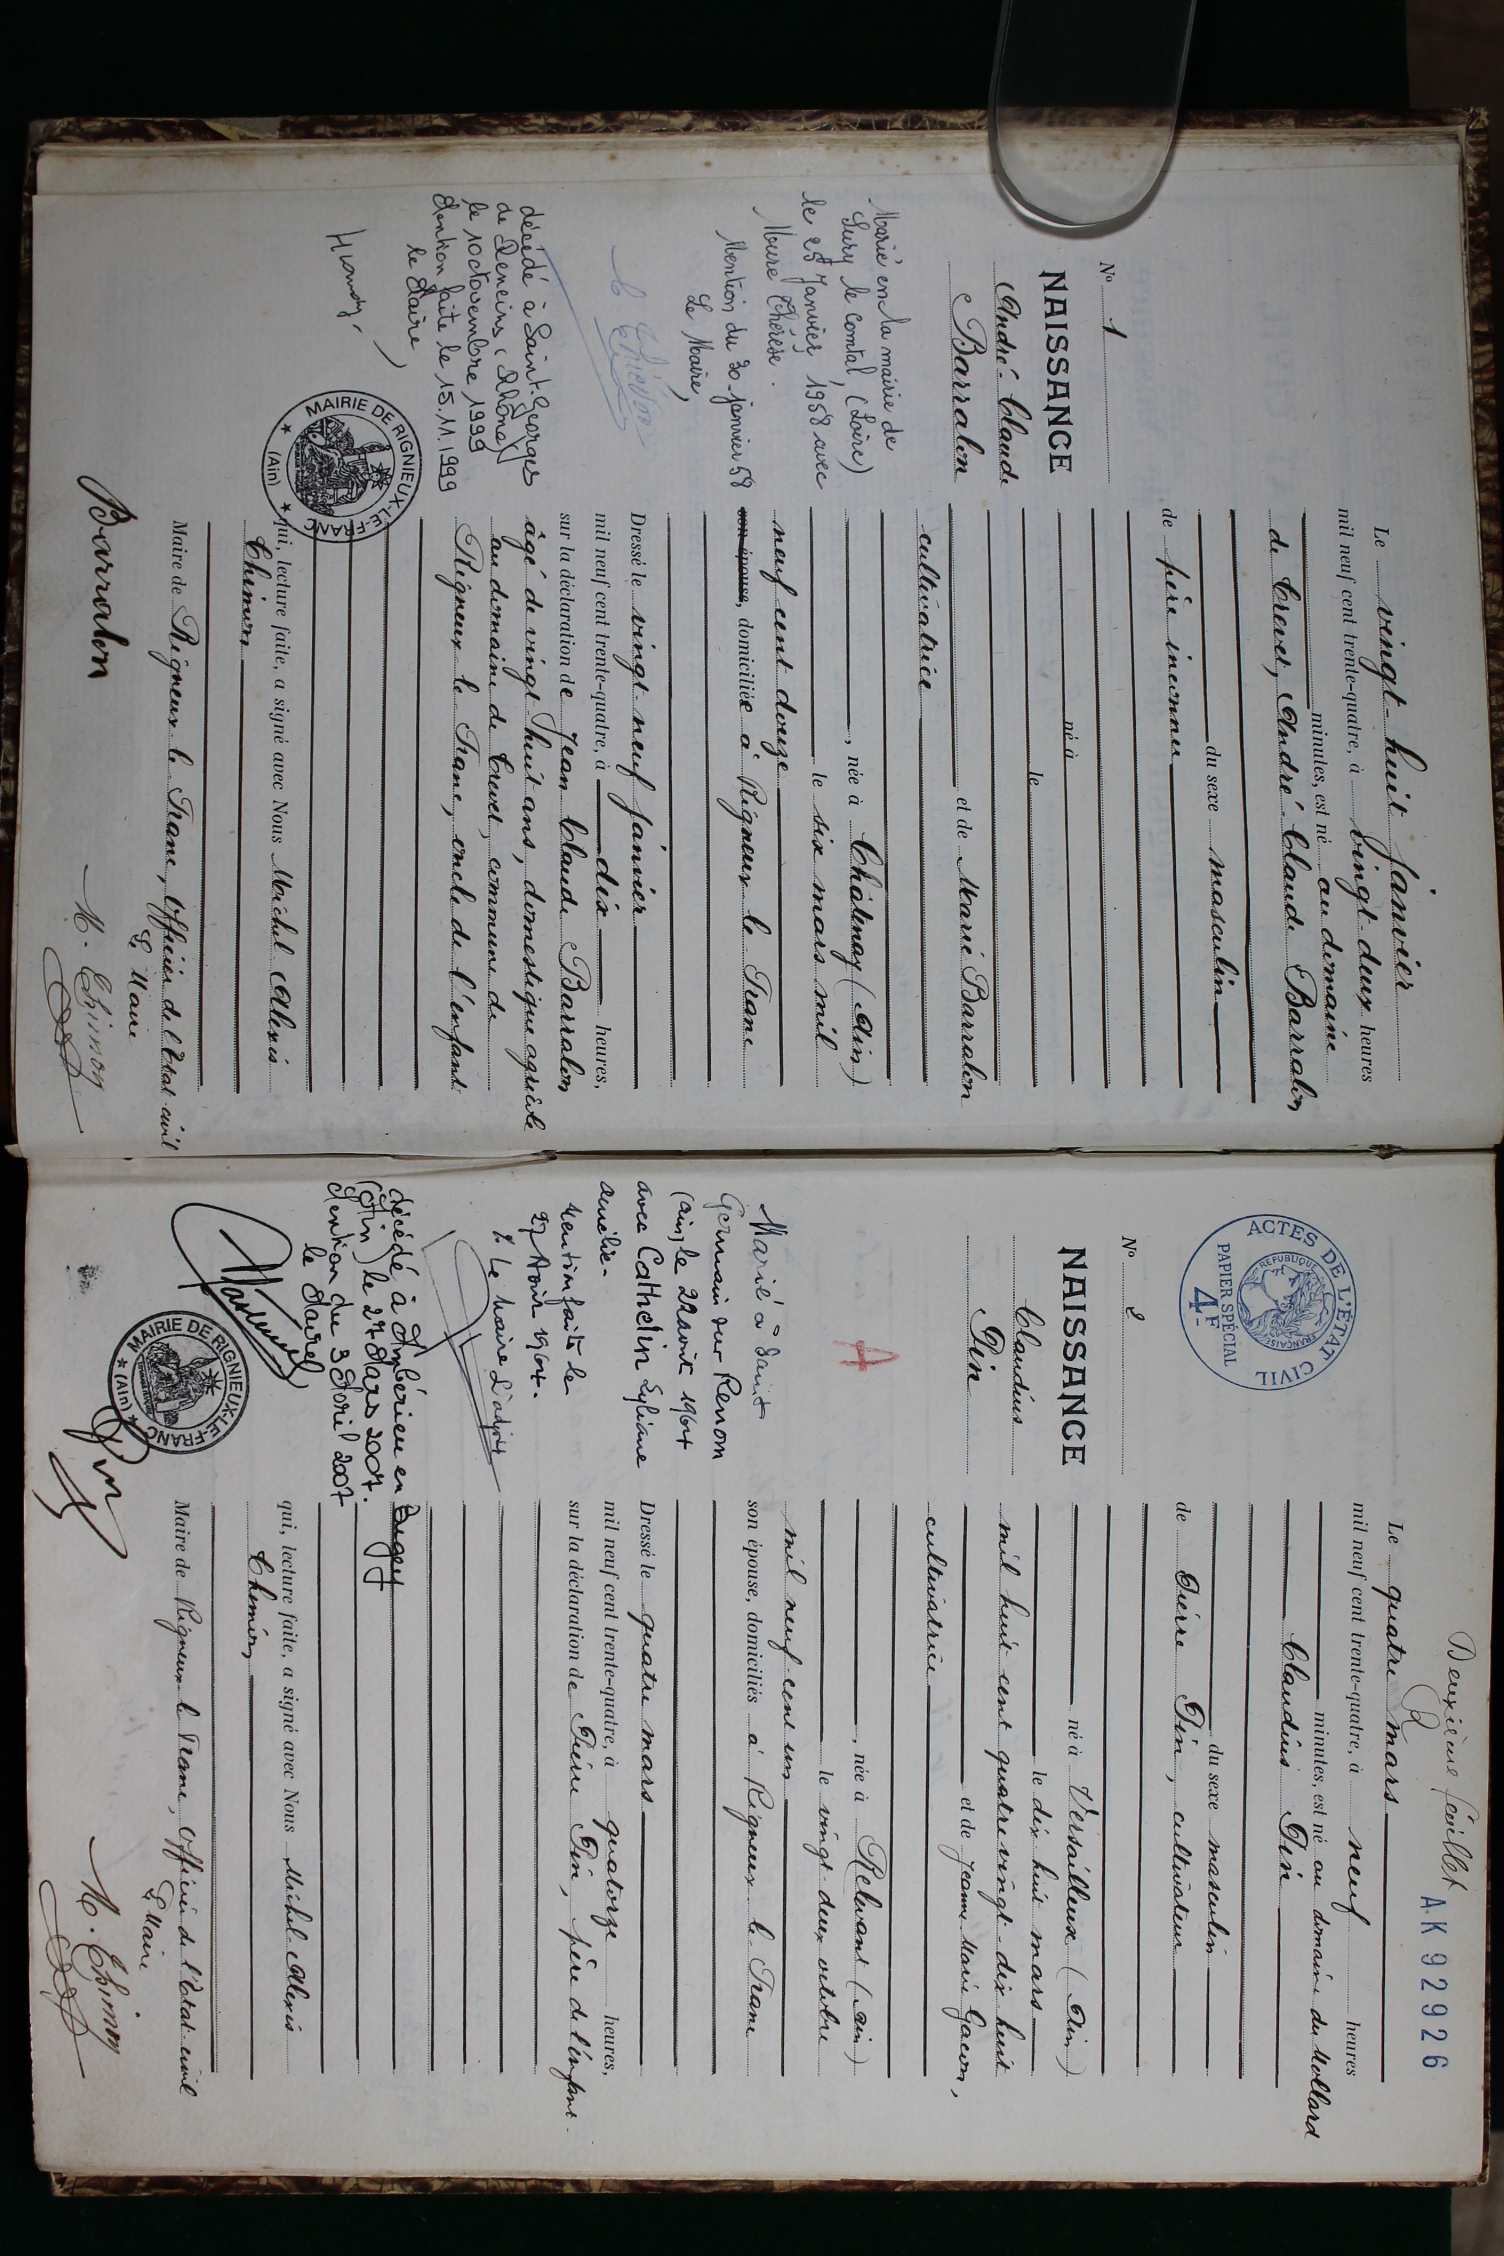 N° 1
NAISSANCE
André-Claude
Barralon
Marié en la mairie de
Sury le Comtal, (Loire)
le 25 Janvier 1958 avec
Mure Thérèse.
Mention du 30 janvier 58
Le Maire,
décédé à Saint-Georges
de Reneins (Rhône)
le 10
1999
mention faite le 15.11.1999
le Maire
MAIRIE DE RIGNIEUX-LE-FRANC
(Ain)
Le vingt-huit janvier
mil neuf cent trente-quatre, à vingt-deux heures
minutes, est né au domaine
de Crevet, André-Claude Barralon
du sexe masculin
de père inconnu
né à
le
et de Marie Barralon
cultivatrice
, née à Châtenay (Ain)
le six mars mil
neuf cent douze
son épouse, domiciliée à Rigneux le Franc
Dressé le vingt-neuf janvier
mil neuf cent trente-quatre, à dix heures,
sur la déclaration de Jean Claude Barralon
âgé de vingt-huit ans, domestique agricole
au domaine de Crevet, commune de
Rigneux le Franc, oncle de l'enfant
qui, lecture faite, a signé avec Nous Michel Alexis
Thimon
Maire de Rigneux le Franc, officier de l'état civil
Le Maire
Barralon
M. Thimon
Deuxième feuillet
AK 92926
ACTES DE L'ÉTAT CIVIL
RÉPUBLIQUE FRANÇAISE
PAPIER SPÉCIAL
4F
N° 2
NAISSANCE
Claudius
Pin
A
Marié à Saint
Germain sur Renom
(Ain) le 22 août 1964
avec Cathelin Lyliane
Amélie-
Mention faite le
27 Août 1964.
P. Le Maire L'adjoint
décédé à Ambérieu en Bugey
(Ain) le 27 Mars 2007.
Mention du 3 Avril 2007
le Maire
MAIRIE DE RIGNIEUX-LE-FRANC
(Ain)
Le quatre mars
mil neuf cent trente-quatre, à neuf heures
minutes, est né au domaine du Mollard
Claudius Pin
du sexe masculin
de Pierre Pin, cultivateur
né à Versailleux (Ain)
le dix huit mars
mil huit cent quatre vingt-dix huit
et de Jeanne Marie Gacon,
cultivatrice
, née à Relevant (Ain)
le vingt deux octobre
mil neuf cent un
son épouse, domiciliés à Rigneux le Franc
Dressé le quatre mars
mil neuf cent trente-quatre, à quatorze heures,
sur la déclaration de Pierre Pin, père de l'enfant
qui, lecture faite, a signé avec Nous Michel Alexis
Thimon
Maire de Rigneux le Franc, officier de l'état-civil
Le Maire
Pin
M. Thimon